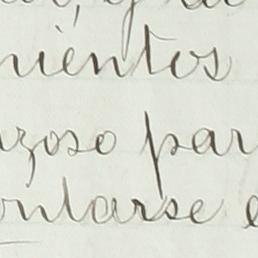 nientos
zoso par
ontarse e